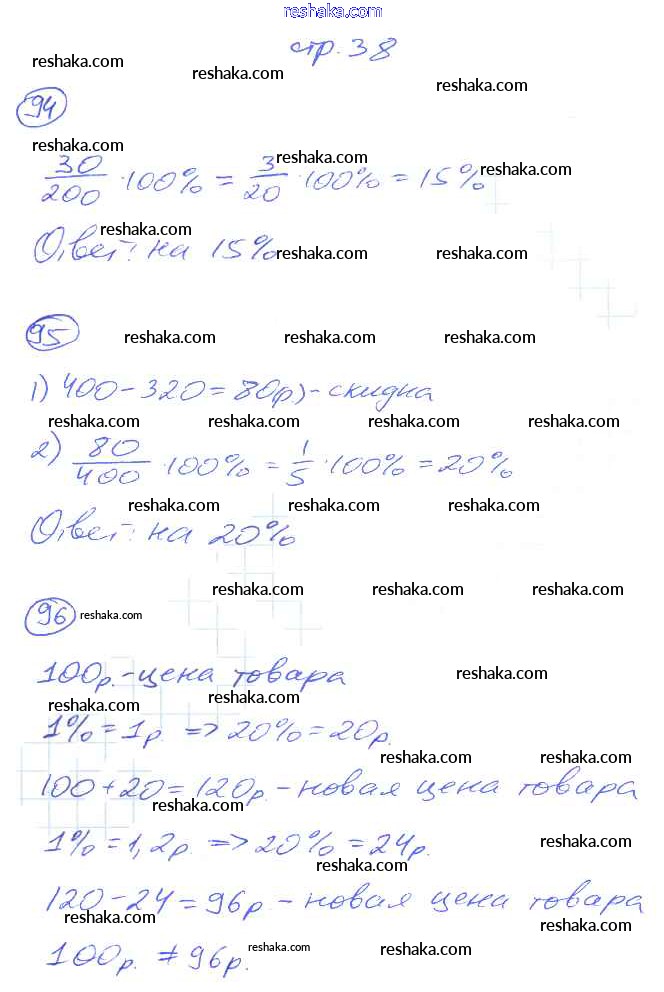 www.reshaka.com
стр. 38
reshaka.com reshaka.com reshaka.com
94
reshaka.com reshaka.com reshaka.com
30/200 · 100% = 3/20 · 100% = 15%
reshaka.com reshaka.com reshaka.com
Ответ: на 15%
95
reshaka.com reshaka.com reshaka.com
1) 400 - 320 = 80(р) - скидка
reshaka.com reshaka.com reshaka.com reshaka.com
2) 80/400 · 100% = 1/5 · 100% = 20%
reshaka.com reshaka.com reshaka.com
Ответ: на 20%
reshaka.com reshaka.com reshaka.com
96 reshaka.com
100р. - цена товара
reshaka.com
reshaka.com reshaka.com
1% = 1р. => 20% = 20р.
reshaka.com reshaka.com
100 + 20 = 120р. - новая цена товара
reshaka.com
1% = 1,2р. => 20% = 24р.
reshaka.com
reshaka.com
120 - 24 = 96р - новая цена товара
reshaka.com reshaka.com
100р. ≠ 96р.
reshaka.com reshaka.com